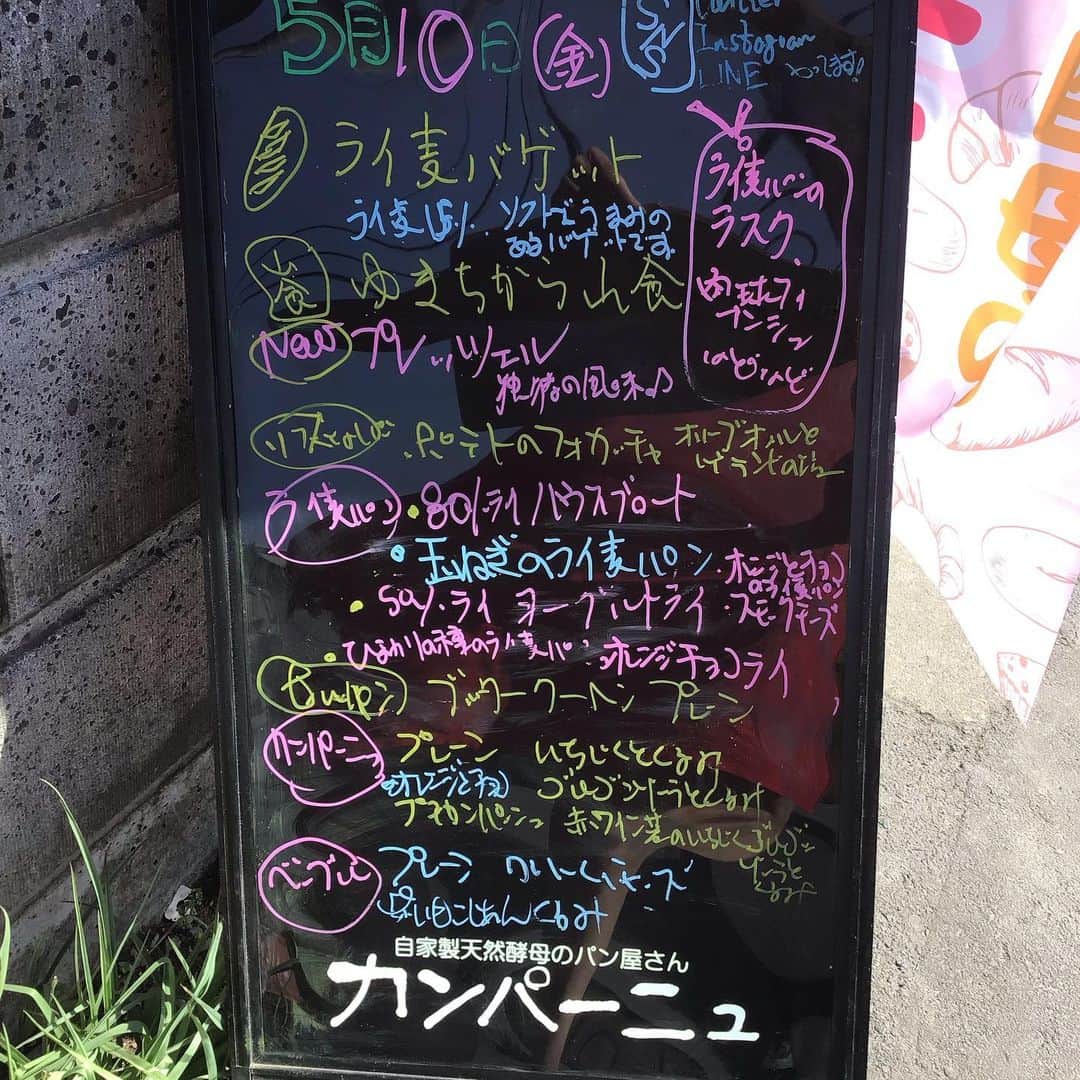 5月10日(金) SNS
Instagram
LINE やってます!
ライ麦バゲット
ライ麦15% ソフトでうまみの
あるバゲットです
ライ麦パンの
ラスク
ゆきちから山食
New プレッツェル
独特の風味♪
ポテトのフォカッチャ オリーブオイルと
ライ麦パン ・80%ライ ハウスブロート
・玉ねぎのライ麦パン ・オレンジとチョコ
のライ麦パン
・50%ライ ヨーグルトライ ・スモークチーズ
・ひまわりの種のライ麦パン ・オレンジチョコライ
ブッタークーヘン プレーン
カンパーニュ プレーン いちじくとくるみ
オレンジとチョコ ゴルゴンゾーラとくるみ
プチカンパーニュ 赤ワイン煮のいちじく ゴルゴン
ゾーラと
くるみ
ベーグル プレーン クリームチーズ
あんくるみ
自家製天然酵母のパン屋さん
カンパーニュ